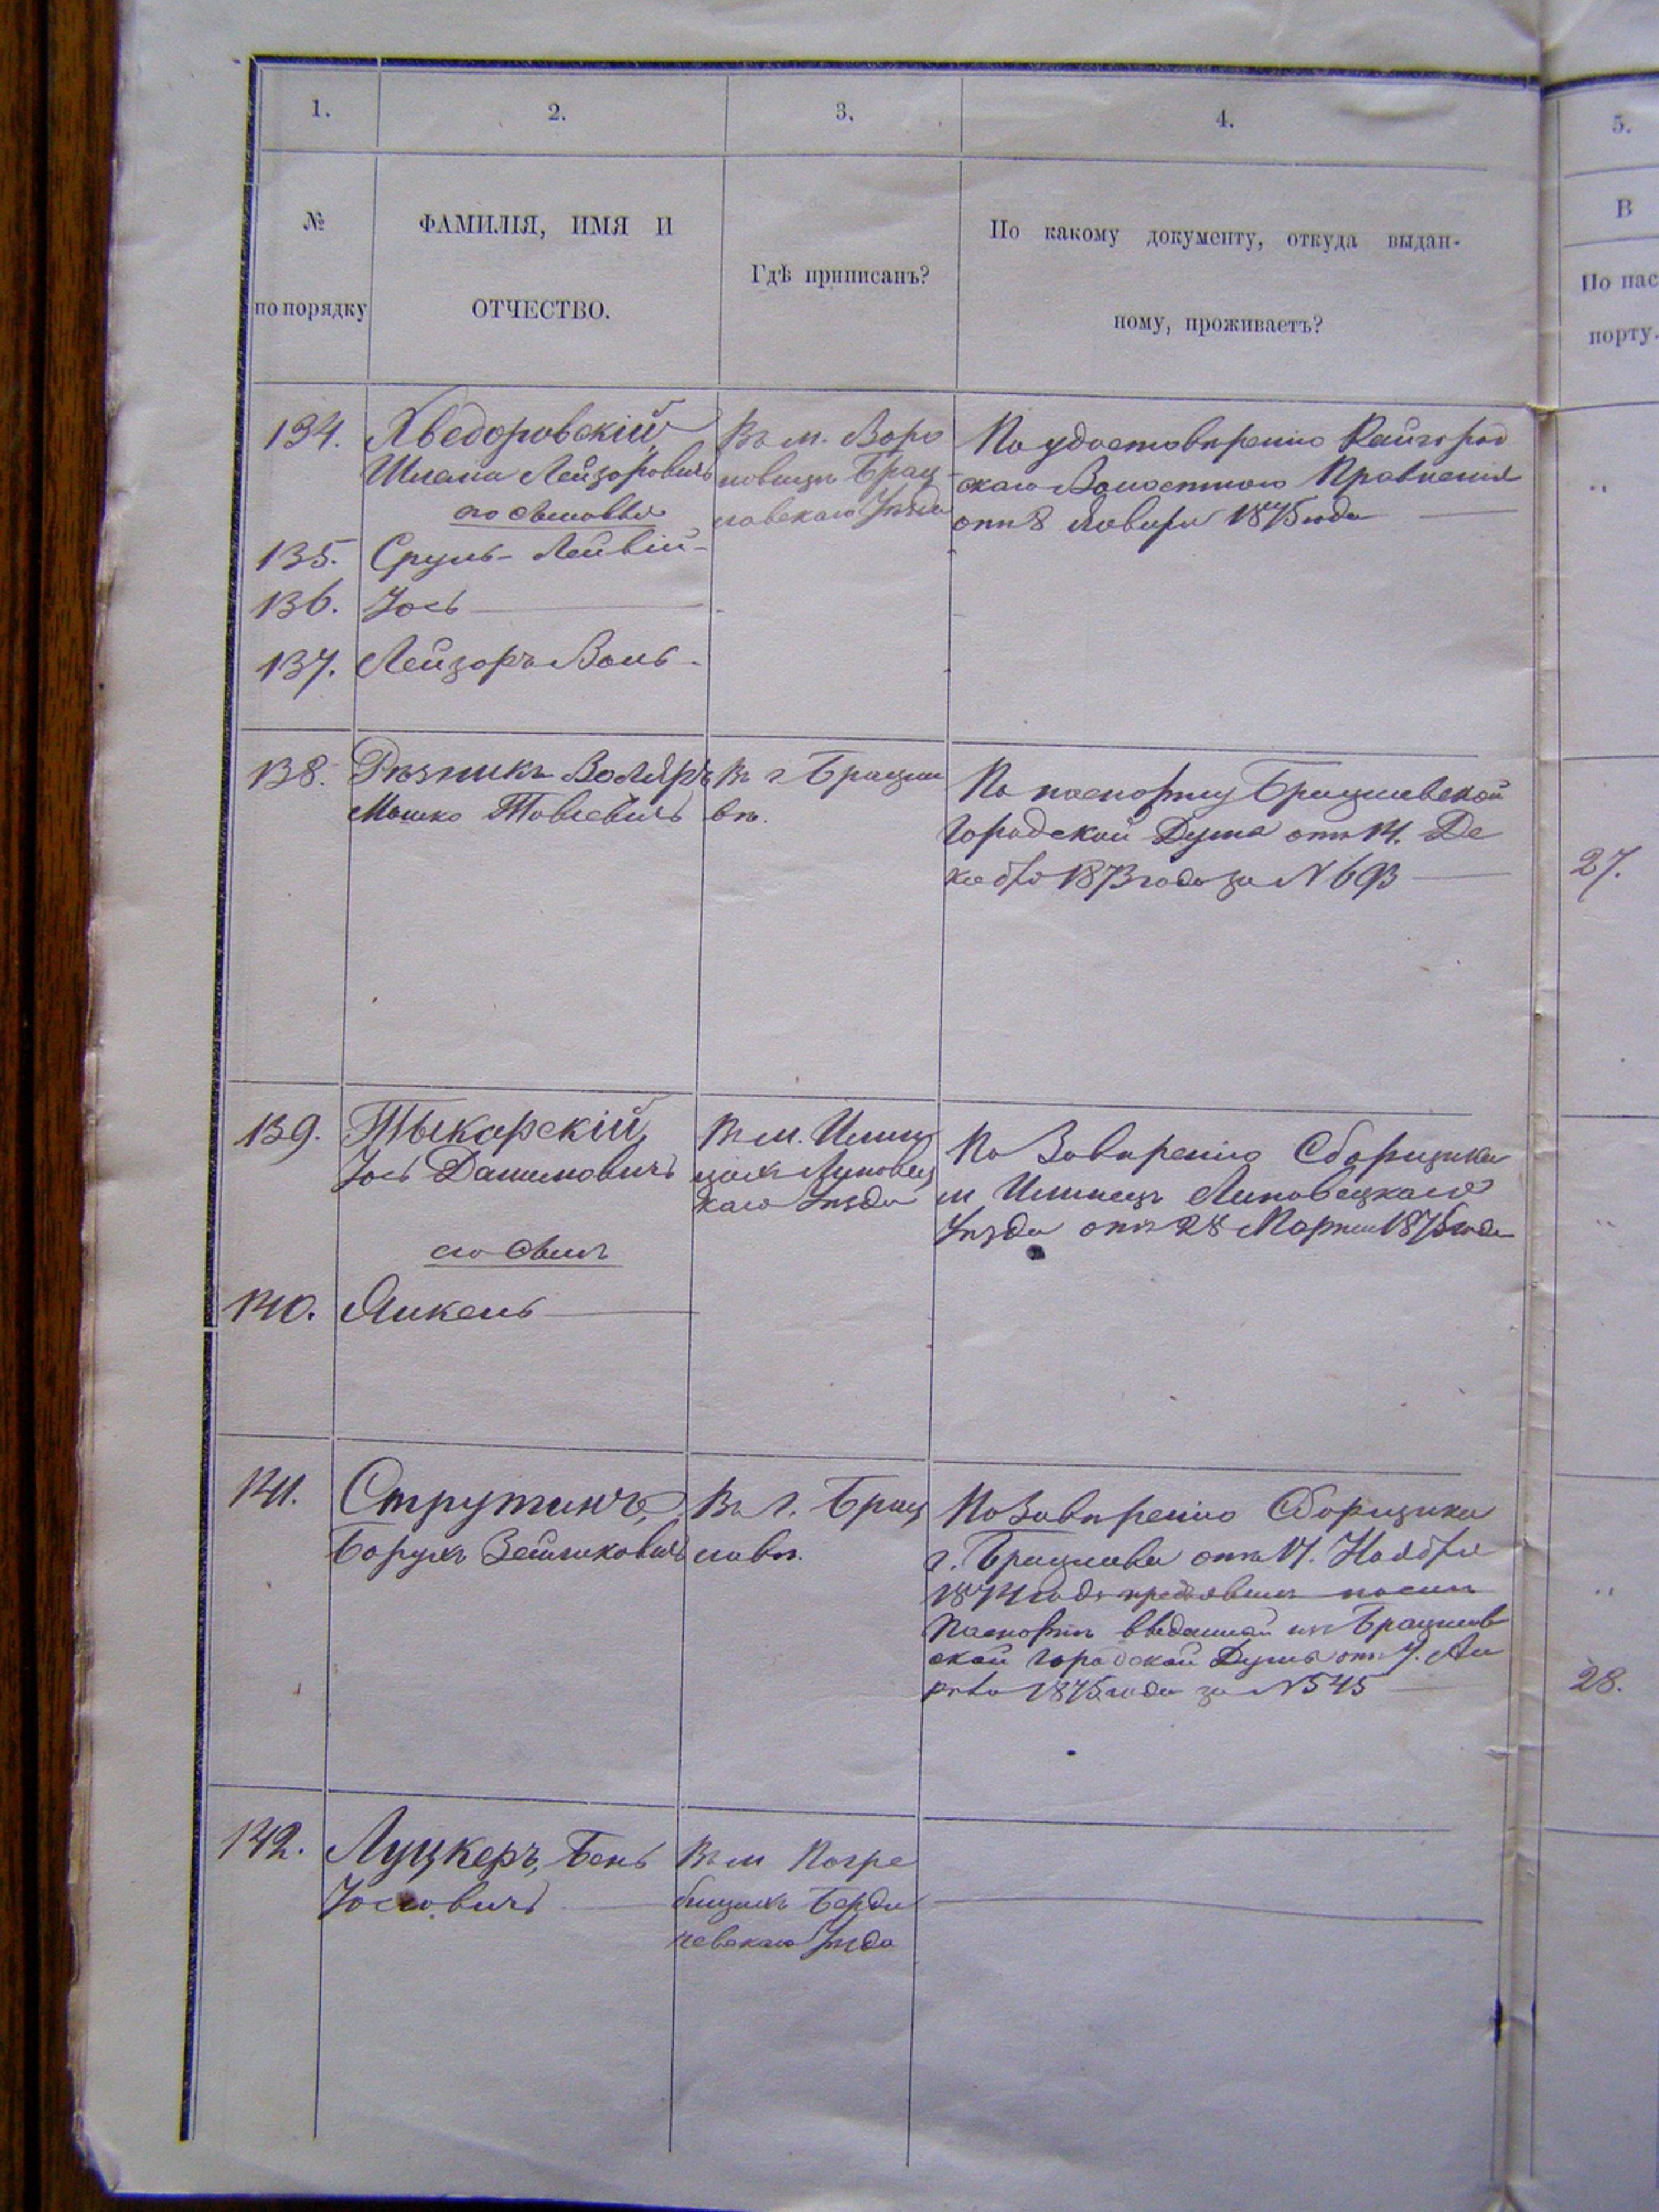 1.
2.
3.
4.
5.
№
по порядку
ФАМИЛІЯ, ИМЯ И
ОТЧЕСТВО.
Гдѣ приписанъ?
По какому документу, откуда выдан-
ному, проживаетъ?
В
По пас
порту.
134.
Яведоровскій
Шлема Лейзоровичъ
его сыновья
Въ м. Воро
новицѣ Брац
лавскаго Уѣзда
По удостовѣренію Райгород
скаго Волостного Правленія
отъ 8 Января 1875 года
135. Сруль-Лейвій-
136. Іось
137. Лейзоръ Воль-
138. Рѣзникъ Воляръ
Мошко Товіевичъ
Въ г Брацла
вѣ.
По паспорту Брацлавской
Городской Думы отъ 14. Де
кабря 1873 года за № 693
27.
139. Тыкарскій
Іось Даниловичъ
его сынъ
Въ м. Илин
цахъ Липовец
каго Уѣзда
По Завѣренію Сборщика
м Илинецъ Липовецкаго
Уѣзда отъ 28 Марта 1875 года
140. Янкель
141. Струтинъ,
Борухъ Зейликовичъ
Въ г. Брац
лавѣ.
По Завѣренію Сборщика
г. Брацлава отъ 17. Ноября
1874 года предъявилъ послѣ
Паспортъ выданный изъ Брацлав
ской Городской Думы отъ 7. Ап
рѣля 1875 года за № 545
28.
142. Луцкеръ, Бень
Іосіовичъ
Въ м Погре
бищахъ Берди
чевскаго Уѣзда